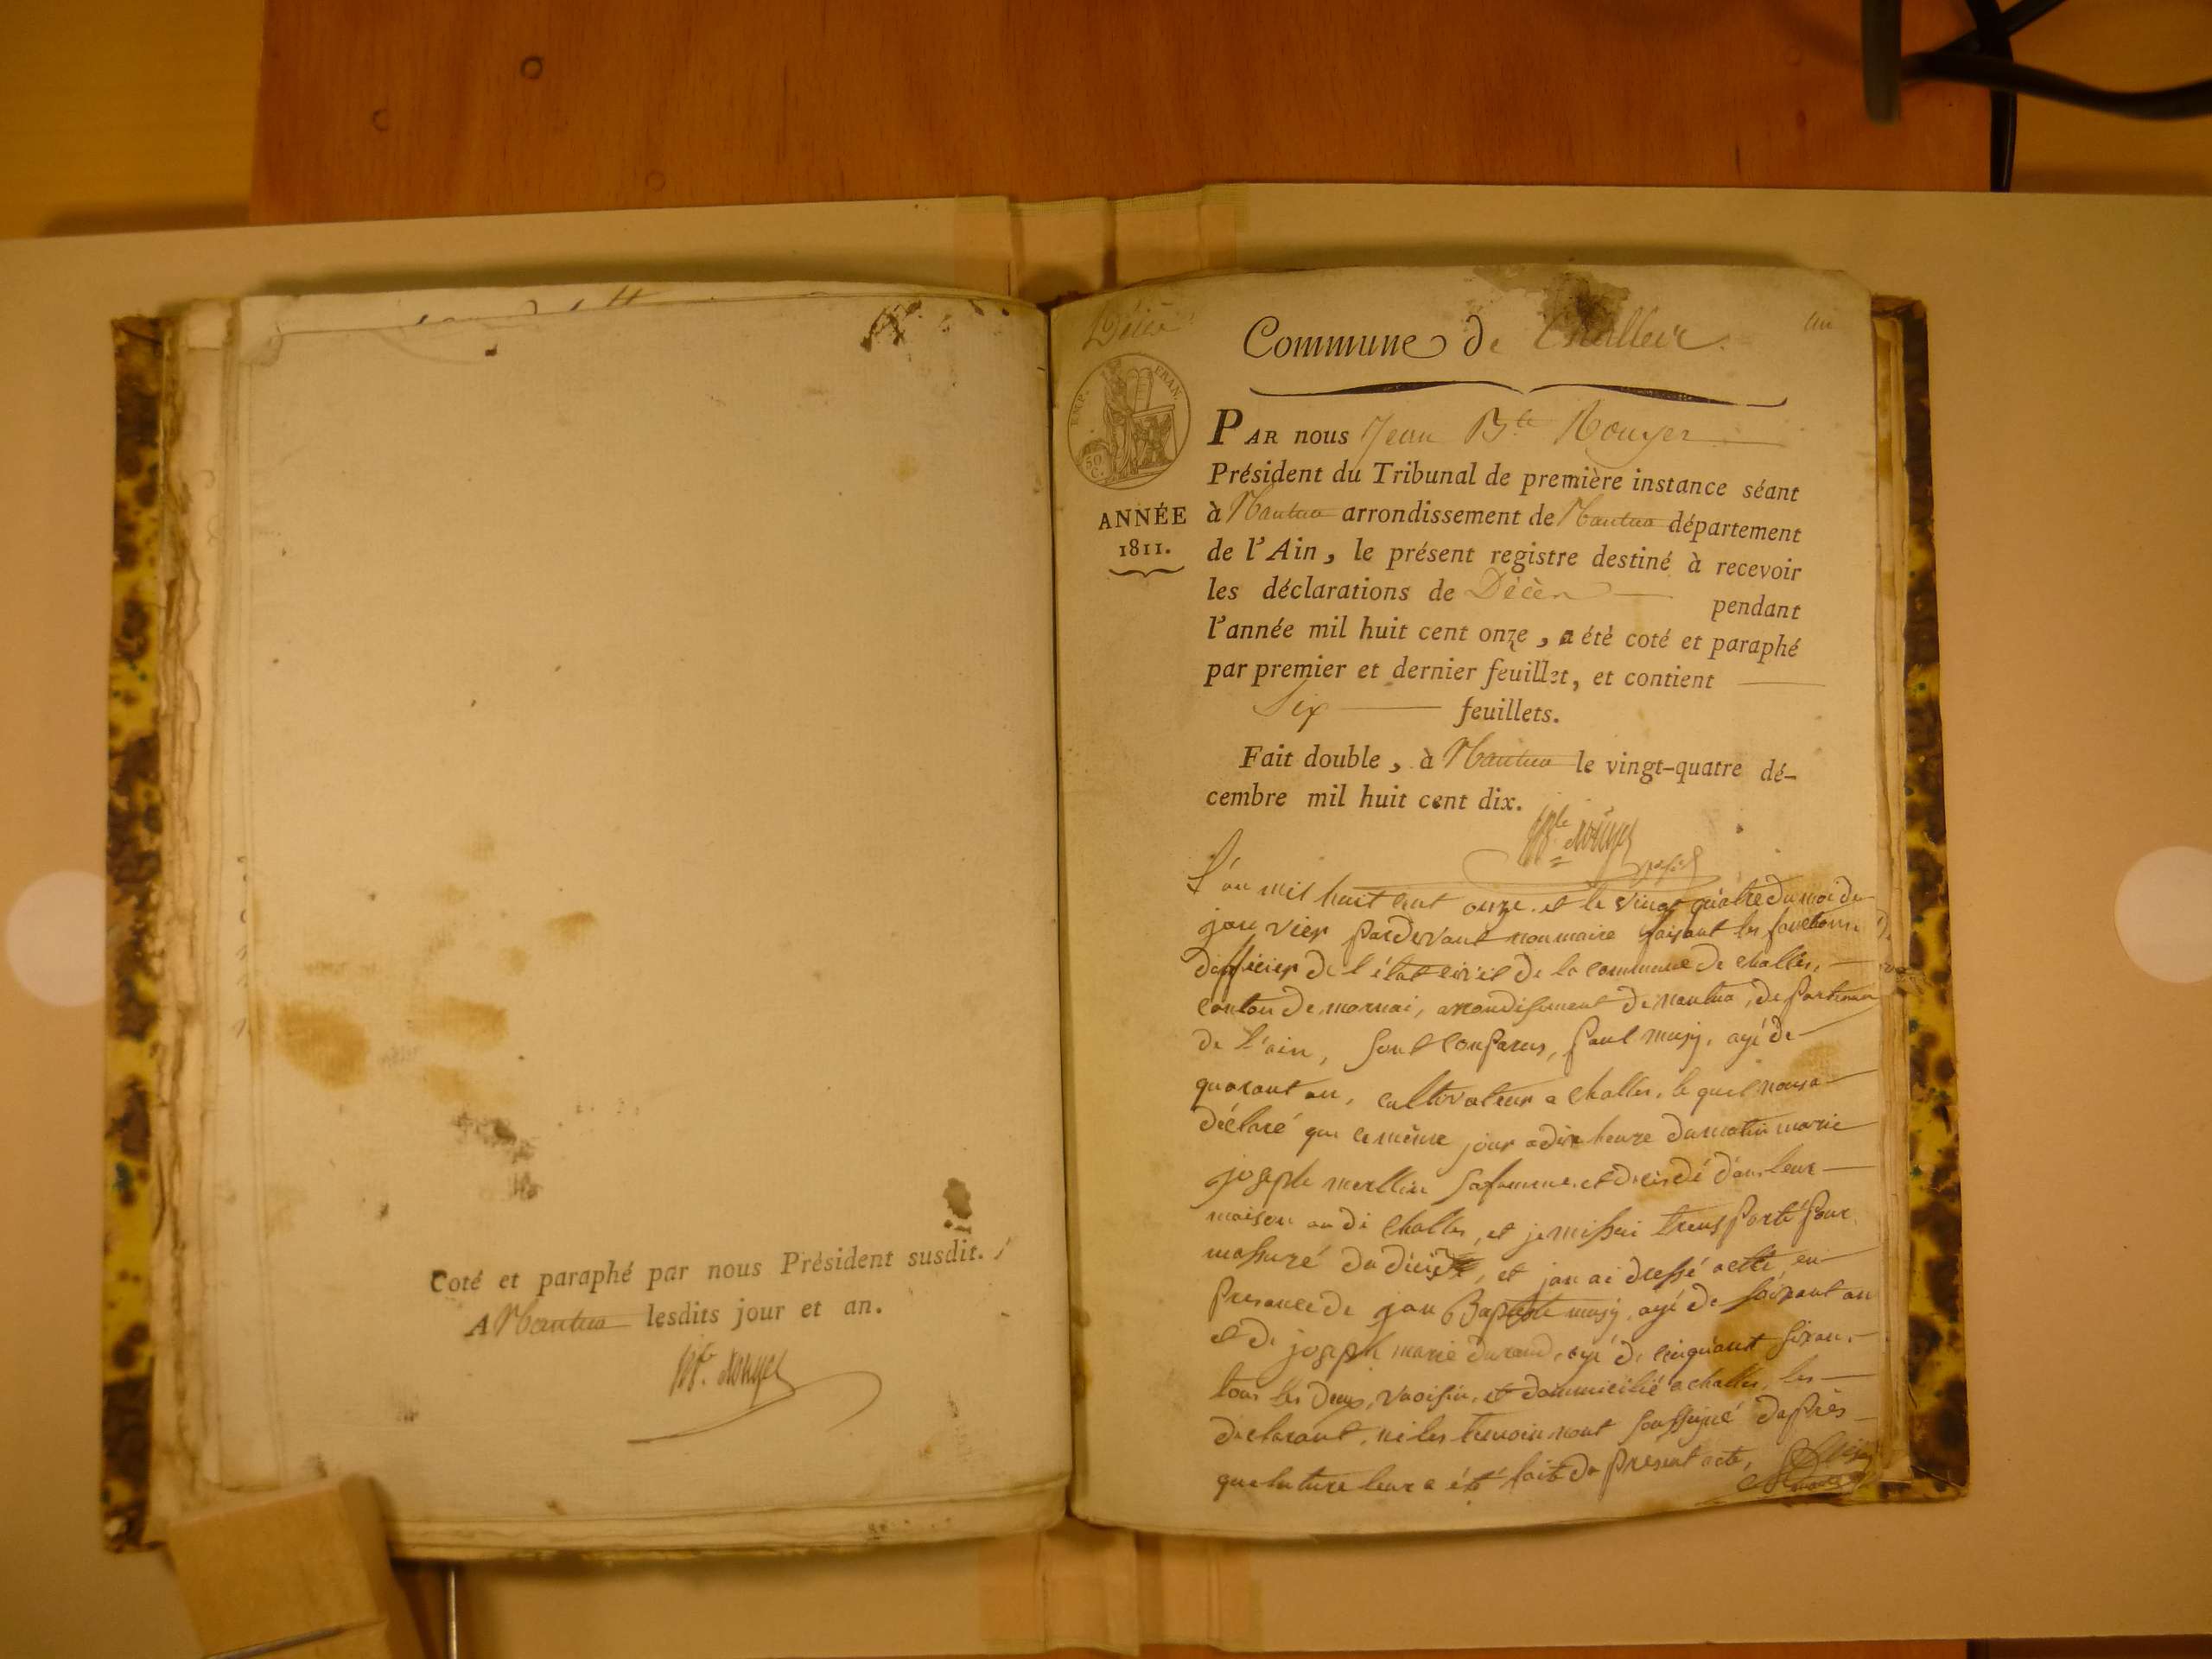 Coté et paraphé par nous Président susdit.
A Nantua lesdits jour et an.
Bte. Rouyer
Décè
Commune de Challeix
un
EMP. FRAN.
50 C.
ANNÉE
1811.
PAR nous Jean Bte Rouyer
Président du Tribunal de première instance séant
à Nantua arrondissement de Nantua département
de l'Ain, le présent registre destiné à recevoir
les déclarations de Décès pendant
l'année mil huit cent onze, a été coté et paraphé
par premier et dernier feuillet, et contient
Six feuillets.
Fait double, à Nantua le vingt-quatre dé-
cembre mil huit cent dix.
Bte Rouyer
L'an mil huit cent onze et le vingt quatre du moi de
janvier pardevant nou maire faisant les fonctions
dofficier de l'état civil de la commune de challes,
canton de mornai, arrondisement de nantua, departeman
de l'ain, sont conparus, paul musy, agé de
quarant an, cultivateur a challes, le quel nous a
déclaré que le même jour a dix heure du matin marie
joseph merllin sa famme, et décédé dans leur
maison au di challes, et je mi sui transporté pour
massuré du décide, et jan ai dressé acte en
presance de jan Baptiste musy, agé de soixant an
et de joseph marie durand, agé de cinquant six an,
tous les deux, vaoisin, et dommicilié a challes, les
declarant, ni les temoin nont soussigné dapprès
que lecture leur a été fait du présent acte,